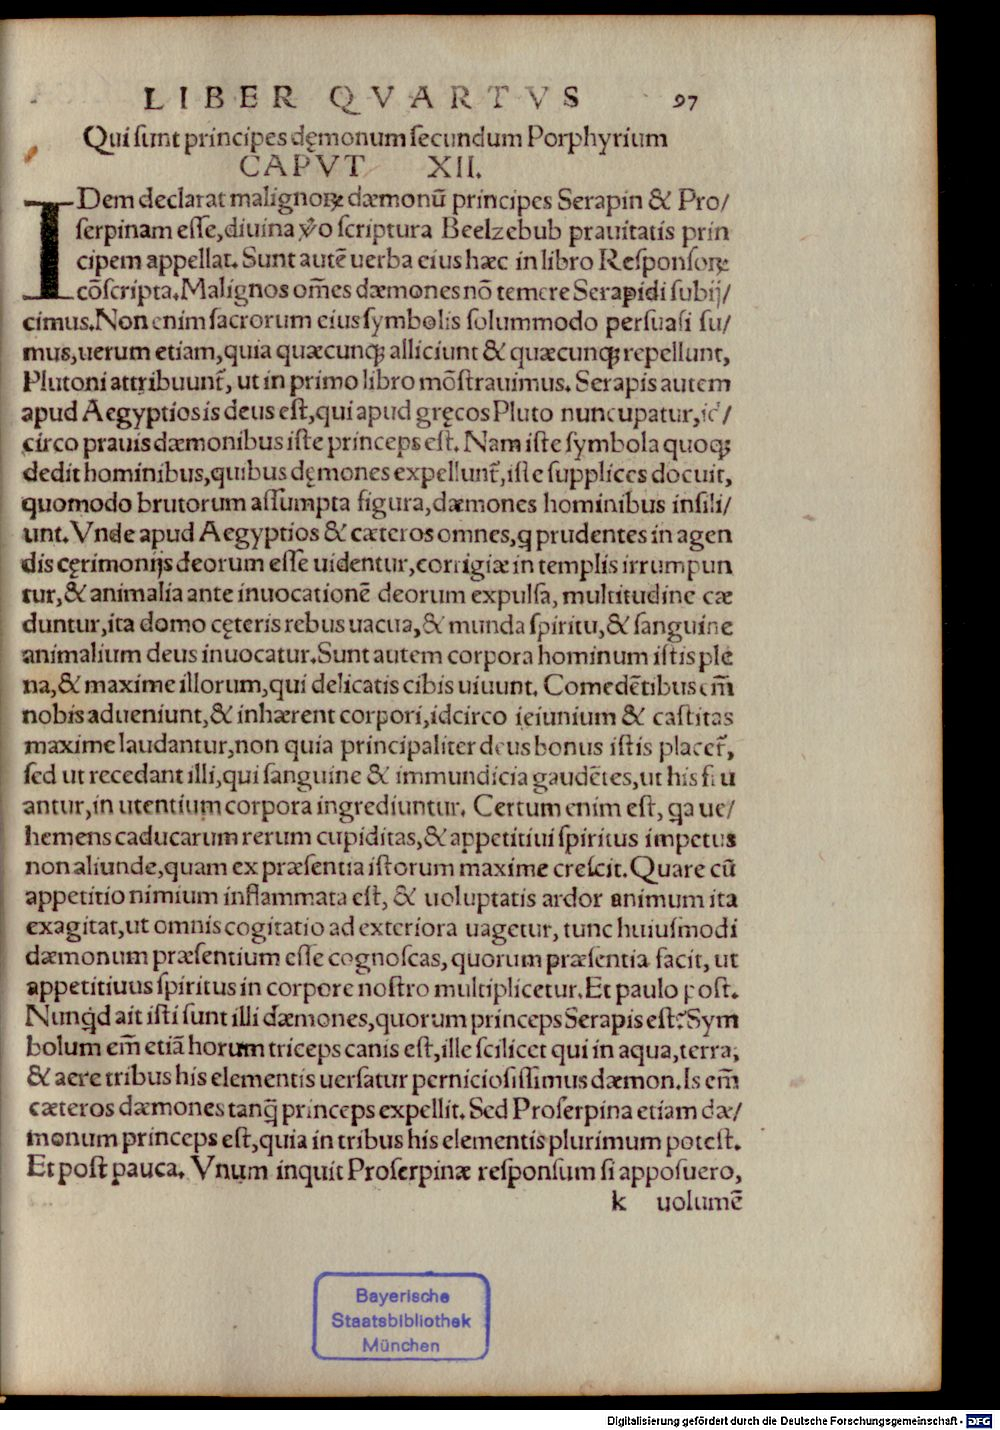 LIBER QVARTVS 97
Qui sunt principes dęmonum secundum Porphyrium
CAPVT XII.
IDem declarat malignoꝝ dæmonū principes Serapin & Pro/
serpinam esse, diuina ꝟo scriptura Beelzebub prauitatis prin
cipem appellat. Sunt autē uerba eius hæc in libro Responsoꝝ
cōscripta. Malignos om̄es dæmones nō temere Serapidi subij/
cimus. Non enim sacrorum eius symbolis solummodo persuasi su/
mus, uerum etiam, quia quæcunqꝫ alliciunt & quæcunqꝫ repellunt,
Plutoni attribuunt̄, ut in primo libro mōstrauimus. Serapis autem
apud Aegyptios is deus est, qui apud gręcos Pluto nuncupatur, id/
circo prauis dæmonibus iste princeps est. Nam iste symbola quoqꝫ
dedit hominibus, quibus dęmones expellunt̄, iste supplices docuit,
quomodo brutorum assumpta figura, dæmones hominibus insili/
unt. Vnde apud Aegyptios & cæteros omnes, q prudentes in agen
dis cęrimonijs deorum esse uidentur, corrigiæ in templis irrumpun
tur, & animalia ante inuocationē deorum expulsa, multitudine cæ
duntur, ita domo cęteris rebus uacua, & munda spiritu, & sanguine
animalium deus inuocatur. Sunt autem corpora hominum istis ple
na, & maxime illorum, qui delicatis cibis uiuunt. Comedētibus em̄
nobis adueniunt, & inhærent corpori, idcirco ieiunium & castitas
maxime laudantur, non quia principaliter deus bonus istis placet̄,
sed ut recedant illi, qui sanguine & immundicia gaudētes, ut his fru
antur, in utentium corpora ingrediuntur. Certum enim est, qa ue/
hemens caducarum rerum cupiditas, & appetitiui spiritus impetus
non aliunde, quam ex præsentia istorum maxime crescit. Quare cū
appetitio nimium inflammata est, & uoluptatis ardor animum ita
exagitat, ut omnis cogitatio ad exteriora uagetur, tunc huiusmodi
dæmonum præsentium esse cognoscas, quorum præsentia facit, ut
appetitiuus spiritus in corpore nostro multiplicetur. Et paulo post.
Nunqd ait isti sunt illi dæmones, quorum princeps Serapis est? Sym
bolum em̄ etiā horum triceps canis est, ille scilicet qui in aqua, terra,
& aere tribus his elementis uersatur perniciosissimus dæmon. Is em̄
cæteros dæmones tanq̄ princeps expellit. Sed Proserpina etiam dæ/
monum princeps est, quia in tribus his elementis plurimum potest.
Et post pauca. Vnum inquit Proserpinæ responsum si apposuero,
k uolumē
Bayerische
Staatsbibliothek
München
Digitalisierung gefördert durch die Deutsche Forschungsgemeinschaft - DFG